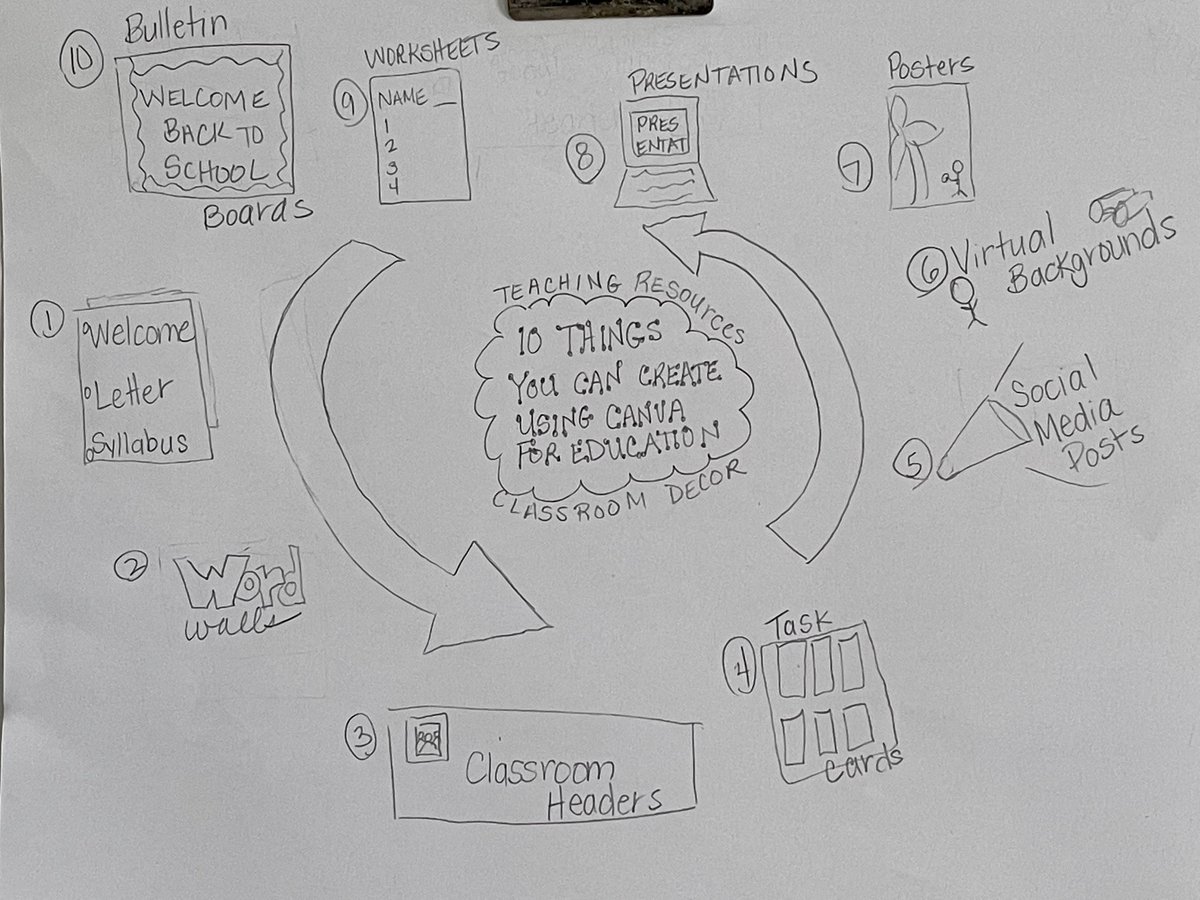 10
Bulletin
WELCOME
BACK TO
SCHOOL
Boards
9
WORKSHEETS
NAME __
1
2
3
4
8
PRESENTATIONS
PRES
ENTAT
7
Posters
6
Virtual
Backgrounds
TEACHING RESOURCES
10 THINGS
YOU CAN CREATE
USING CANVA
FOR EDUCATION
CLASSROOM DECOR
1
Welcome
Letter
Syllabus
5
Social
Media
Posts
2
Word
walls
4
Task
cards
3
Classroom
Headers